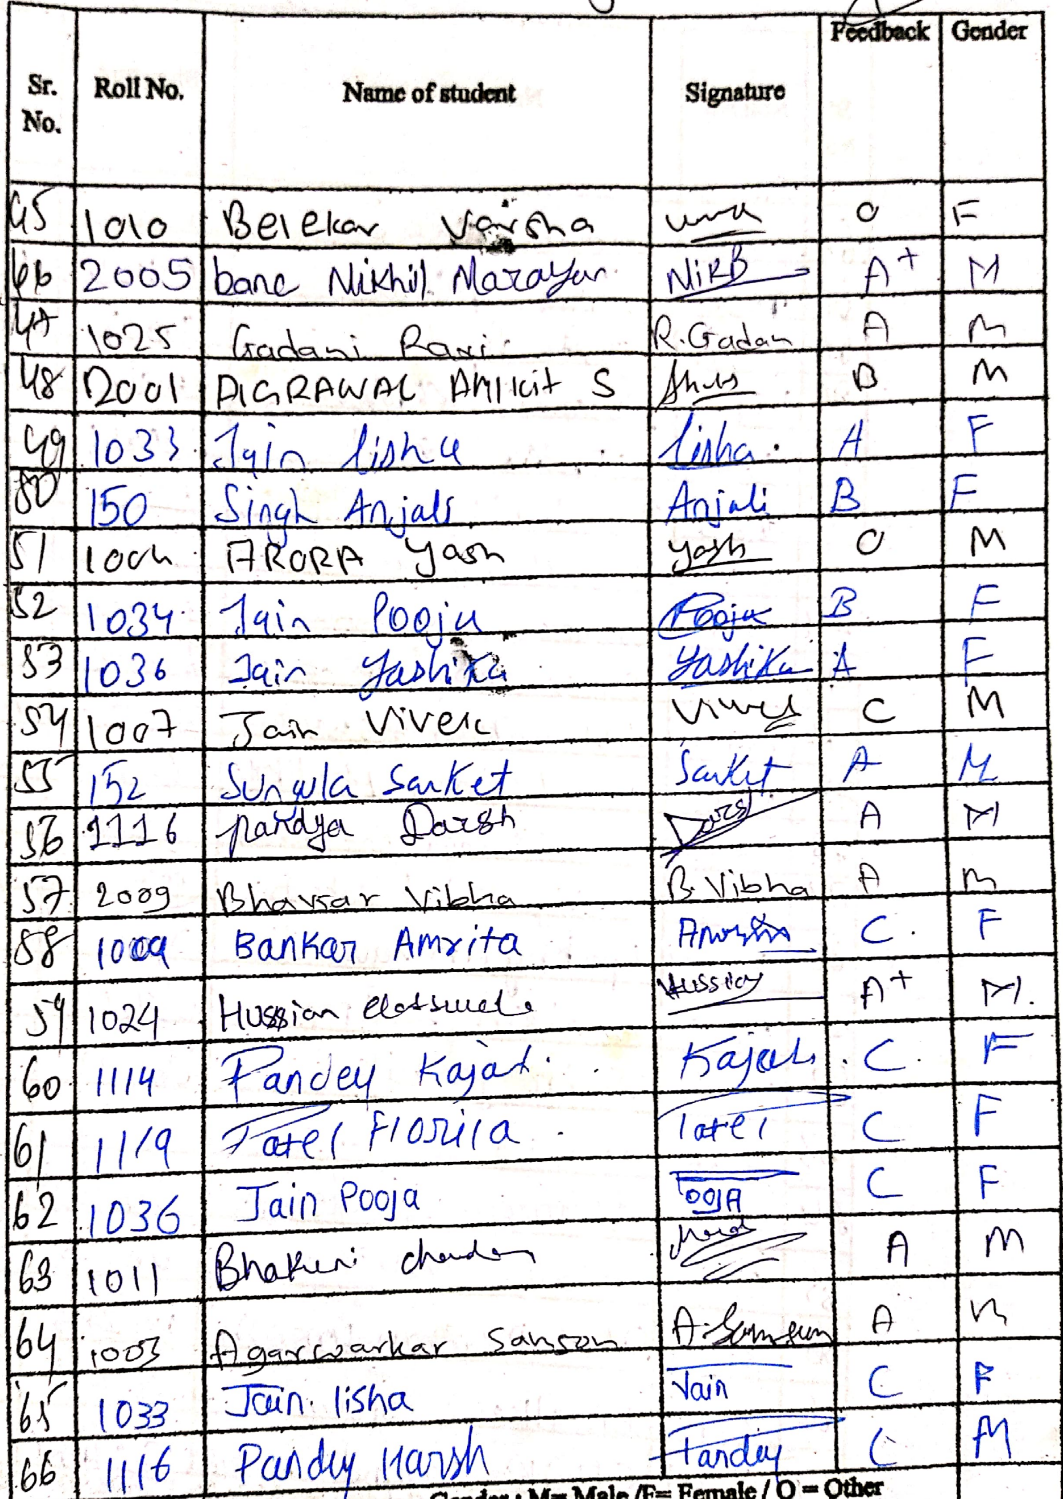 Sr. No. Roll No. Name of student Signature Feedback Gender
45 1010 Belekar Varsha O F
46 2005 bane Nikhil Narayan NirB A+ M
47 1025 Gadani Ravi R.Gadani A M
48 2001 AGRAWAL Ankit S B M
49 1033 Jain lisha lisha. A F
50 150 Singh Anjali Anjali B F
51 1004 ARORA Yash yash O M
52 1034 Jain Pooja Pooja B F
53 1036 Jain Yashika Yashika A F
54 1007 Jain Vivek Vivek C M
55 152 Sanket Sanket A M
56 1116 pandya Darsh Darsh A M
57 2009 Bhavsar Vibha B.Vibha A M
58 1009 Bankar Amrita Amrita C. F
59 1024 Hussian Hussian A+ M.
60 1114 Pandey Kajal. Kajal. C. F
61 1119 Patel Florica Patel C F
62 1036 Jain Pooja Pooja C F
63 1011 Bhakuni chandan A M
64 1003 Agarwarkar Samson A.Samson A M
65 1033 Jain. lisha Jain C F
66 1116 Pandey Harsh Pandey C M
Gender : M= Male /F= Female / O = Other